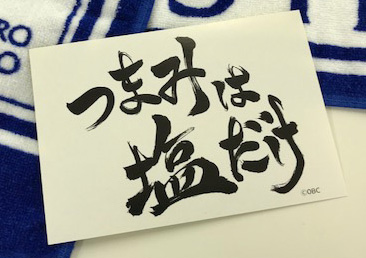 つまみは
塩だけ
©OBC
RO
O